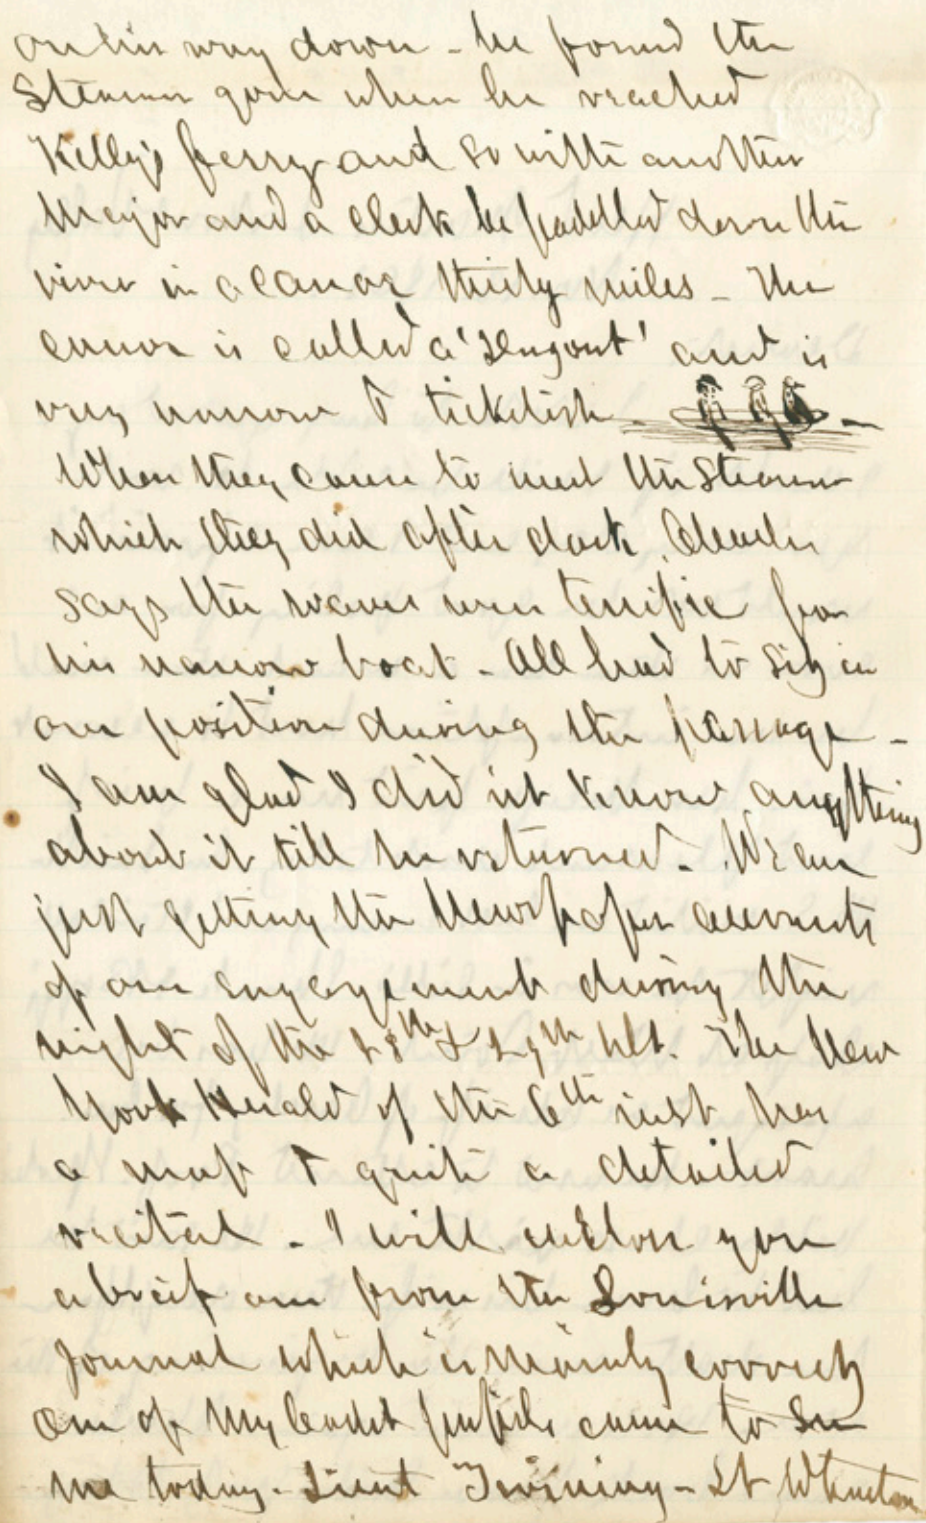 on his way down - he found the
Steamer gone when he reached
Kelly's ferry and so with another
Major and a clerk he paddled down the
river in a canoe thirty miles - The
canoe is called a 'dugout' and is
very narrow & ticklish -
When they came to meet the Steamer
which they did after dark,
says the waves were terrific for
his narrow boat - All had to sit in
one position during the passage -
I am glad I did nt know anything
about it till he returned - We are
just getting the Newspaper accounts
of our engagement during the
night of the 28th & 29th Ult. The New
York Herald of the 6th inst has
a map & quite a detailed
recital - I will enclose you
a brief one from the Louisville
Journal which is mainly correct
One of my Cadet pupils came to see
me today - Lieut Twining - Lt